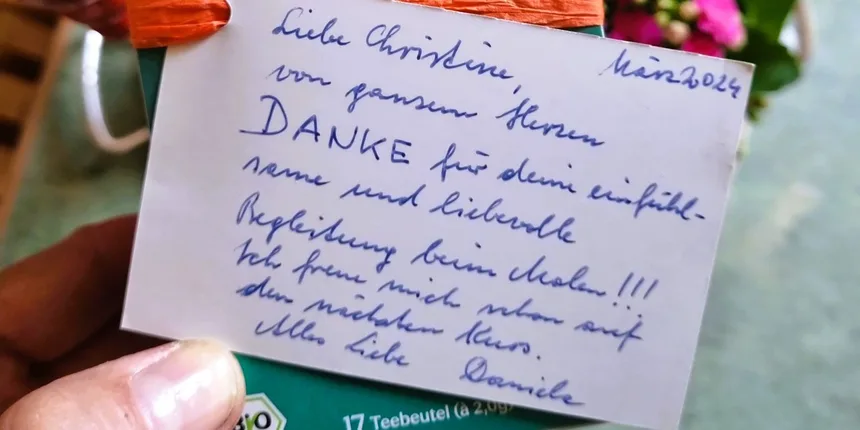 März 2024
Liebe Christine,
von ganzem Herzen
DANKE für deine einfühl-
same und liebevolle
Begleitung beim Malen!!!
Ich freue mich schon auf
den nächsten Kurs.
Alles Liebe Daniela
BIO
17 Teebeutel (à 2,0g)